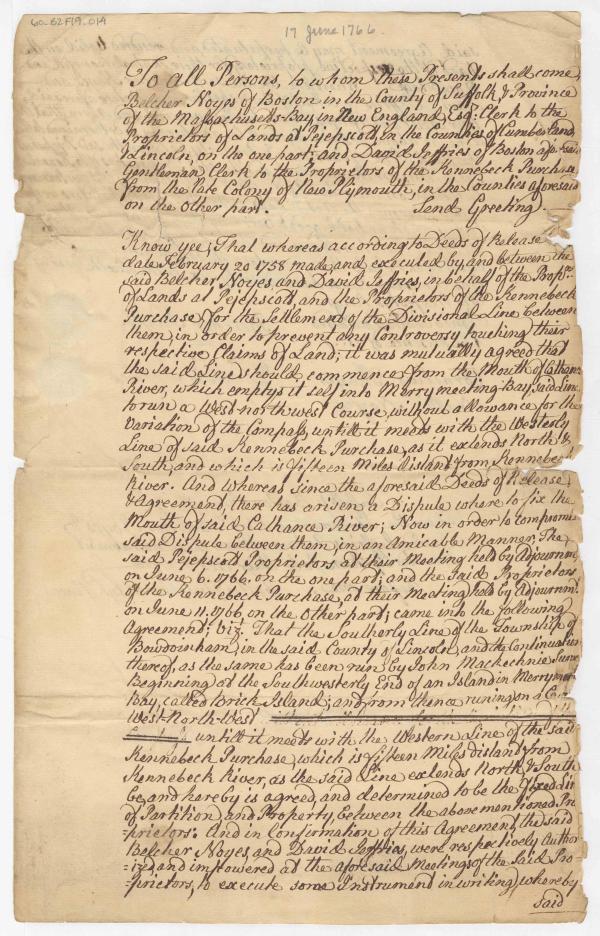 60-62F19.014
17 June 1766.
To all Persons, to whom these Presents shall come,
Belcher Noyes of Boston in the County of Suffolk, & Province
of the Massachusetts-Bay, in New England, Esqr. Clerk to the
Proprietors of Lands at Pejepscott, in the Counties of Cumberland
& Lincoln, on the one part; and David Jeffries of Boston afore-said
Gentleman Clerk to the Proprietors of the Kennebeck Purchase
from the late Colony of New Plymouth, in the Counties aforesaid
on the Other part. Send Greeting.
Know yee, That whereas according to Deeds of Release
date February 20 1758 made, and executed by and between the
said Belcher Noyes, and David Jeffries, in behalf of the Proprs.
of Lands at Pejepscott, and the Proprietors of the Kennebeck
Purchase, for the Settlement of the Divisional Line between
them, in order to prevent any Controversy touching their
respective Claims of Land; it was mutually agreed that
the said Line should commence from the Mouth of Cathance
River, which emptys it self into Merry meeting-Bay, said Line
to run a West-north west Course, without allowance for the
Variation of the Compass, untill it meets with the Westerly
Line of said Kennebeck Purchase, as it extends North &
South, and which is fifteen Miles distant from Kennebeck
River. And Whereas since the aforesaid Deeds of Release
& Agreement, there has arisen a Dispute where to fix the
Mouth of said Cathance River; Now in order to compromise
said Dispute between them, in an Amicable Manner, The
said Pejepscott Proprietors at their Meeting held by Adjournmt.
on June 6. 1766. on the one part; and the Said Proprietors
of the Kennebeck Purchase, at their Meeting held by Adjournmt.
on June 11. 1766 on the Other part; came into the following
Agreement; Vizt. That the Southerly Line of the Township of
Bowdoinham, in the said County of Lincoln, and the Continuation
thereof, as the same has been run by John Mackechnie
Beginning at the Southwesterly End of an Island in Merrymeeting
Bay, called Brick Island; and from thence runing on a
West-North-West
untill it meets with the Western Line of the said
Kennebeck Purchase, which is fifteen Miles distant from
Kennebeck River, as the said Line extends North & South
be, and hereby is agreed, and determined to be the fixed Line
of Partition, and Property, between the above mentioned Pro
=prietors. And in Confirmation of this Agreement, the said
Belcher Noyes, and David Jeffries, were respectively Author
=ized, and impowered at the aforesaid Meetings of the Said Pro
=prietors, to execute some Instrument in writing, whereby
said